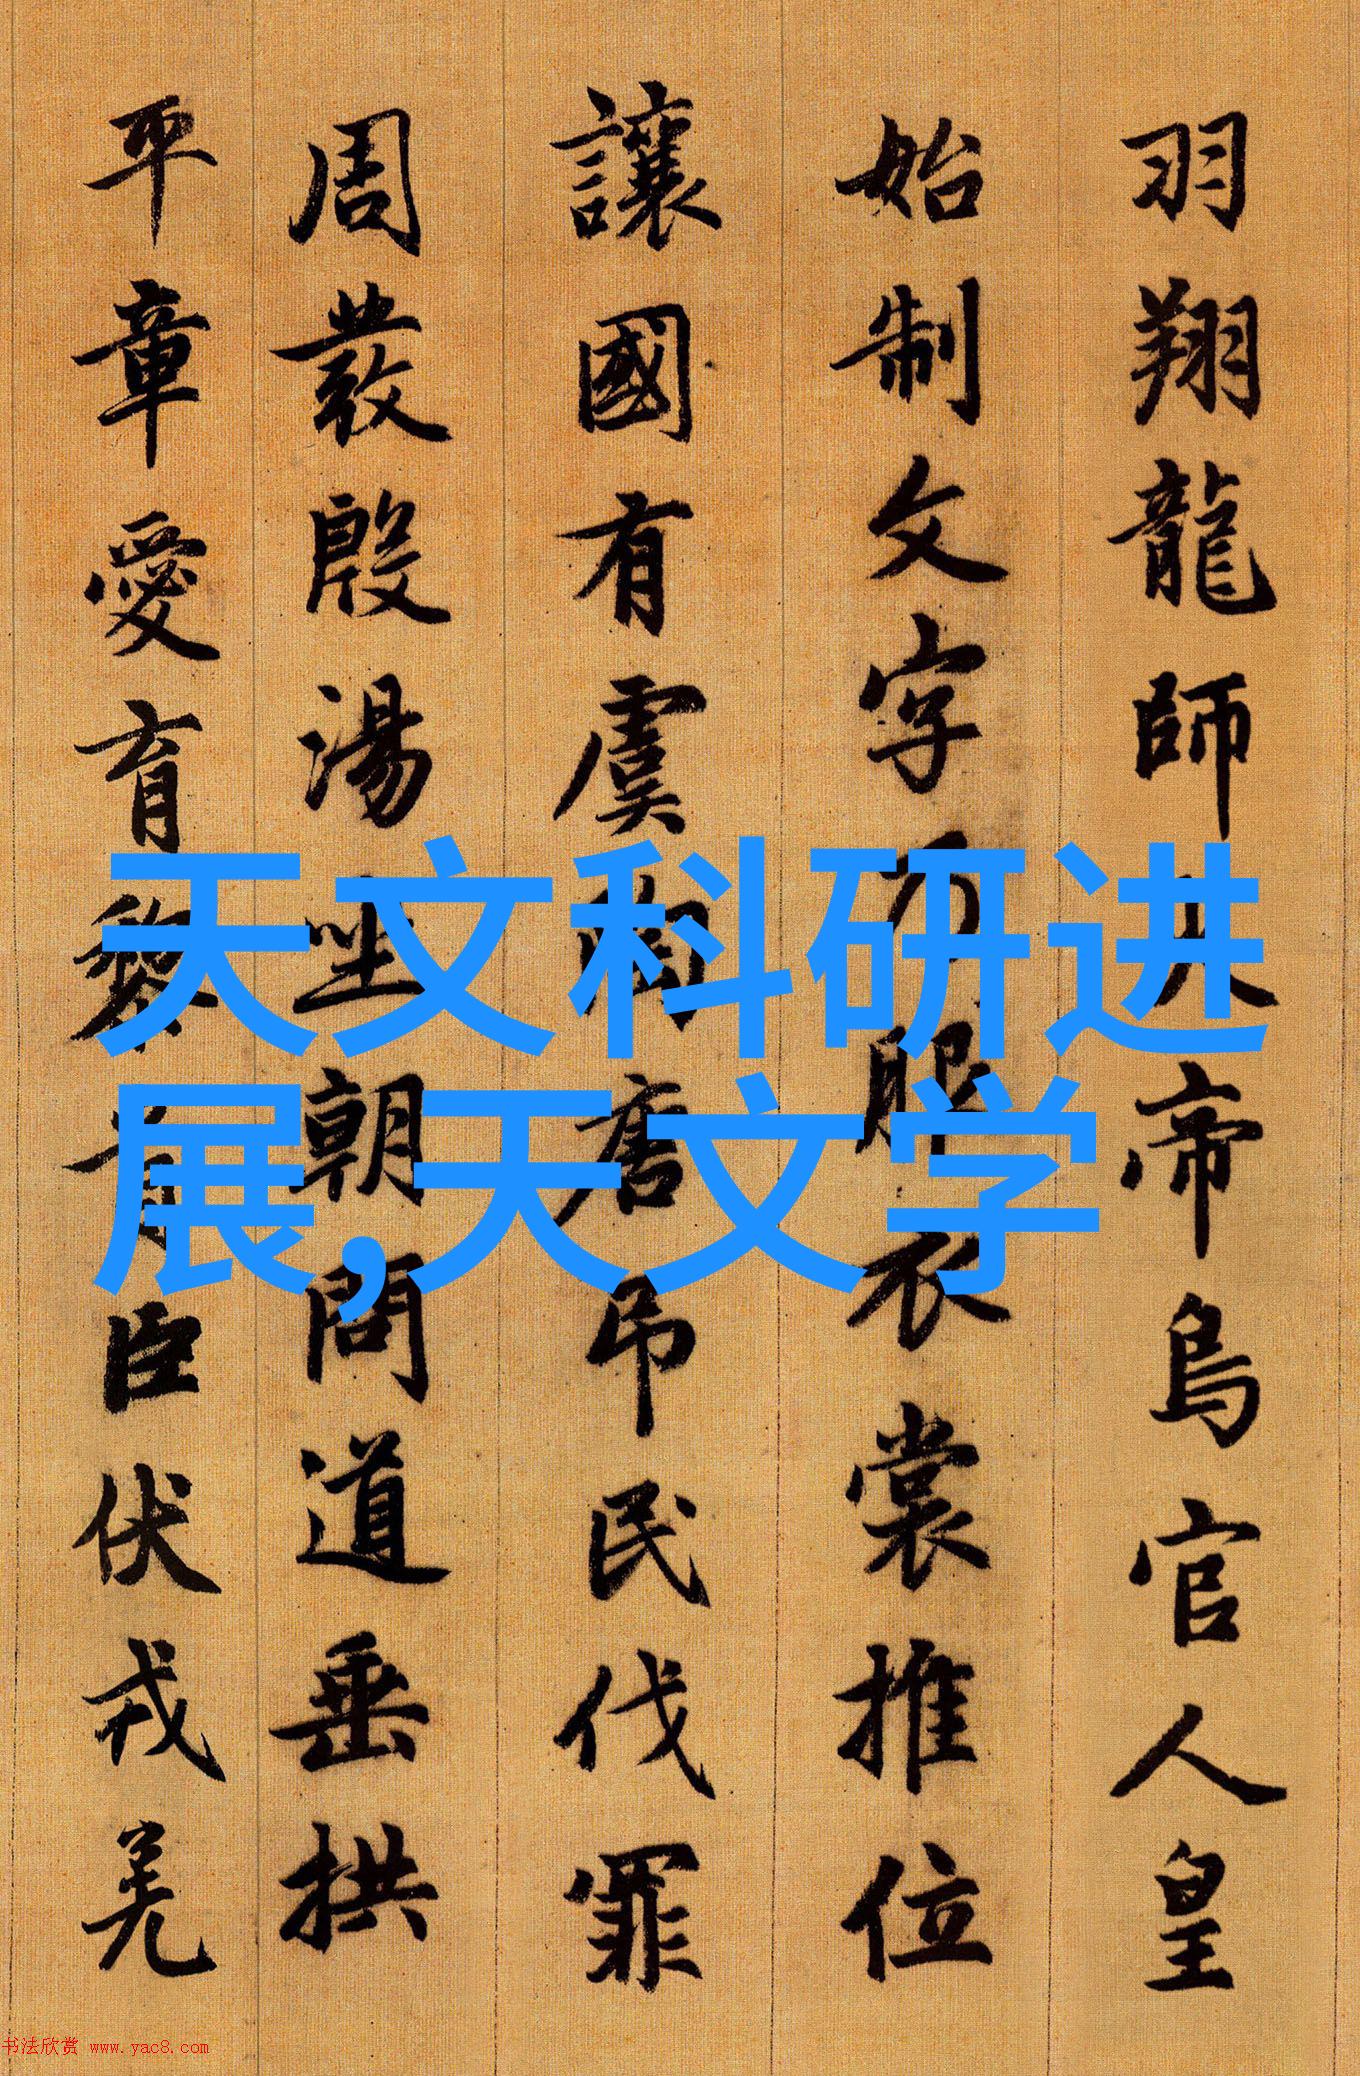 羽翔龍師火帝鳥官人皇
始制文字乃服衣裳推位
讓國有虞陶唐吊民伐罪
周發殷湯坐朝問道垂拱
平章愛育黎首臣伏戎羌
天文科研进
展,天文学
书法欣赏 www.yac8.com